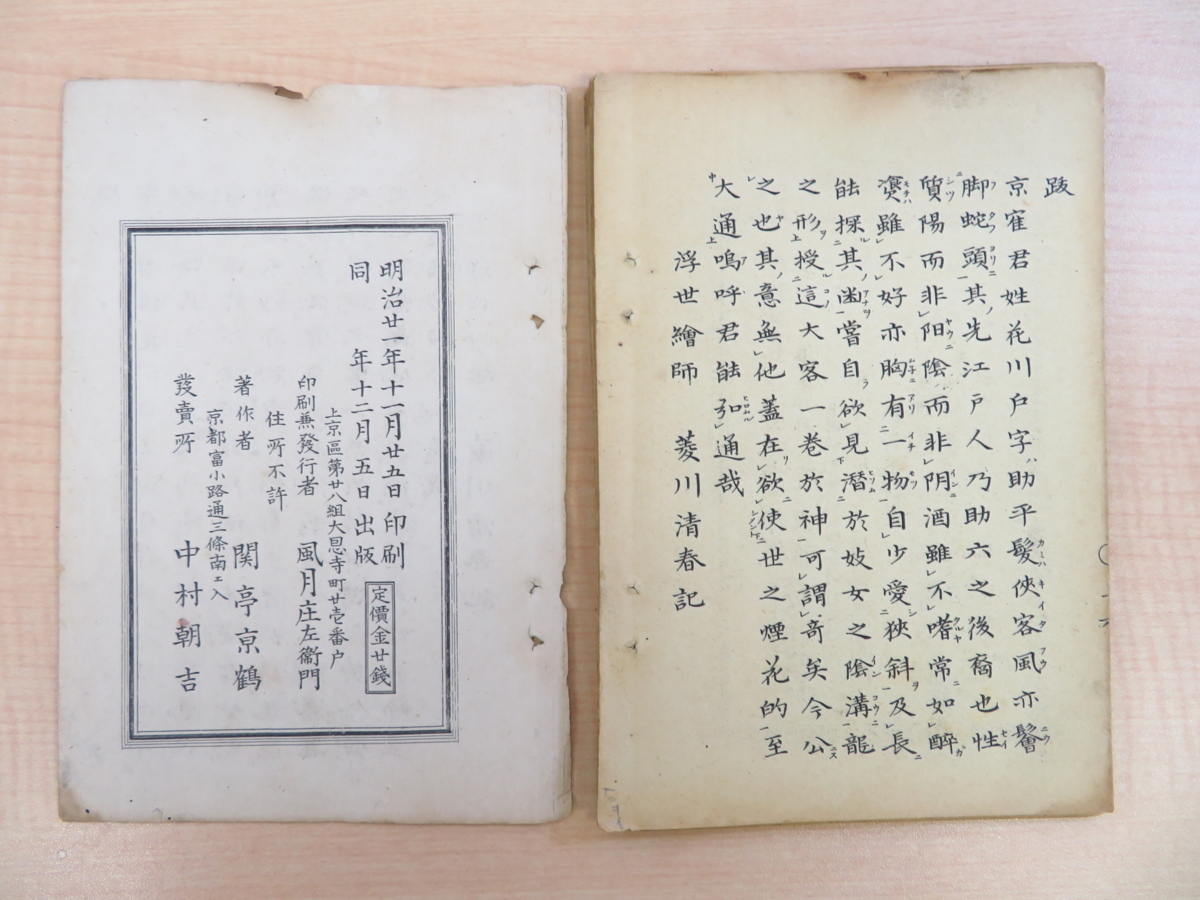 跋
京寉君姓花川戸字助平髪俠客風亦鬠
脚蛇頭其先江戸人乃助六之後裔也性
質陽而非阳陰而非阴酒雖不嗜常如醉
雖不好亦胸有一物自少愛狹斜及長
能探其凾嘗自欲見潜於妓女之陰溝龍
之形授這大客一巻於神可謂奇矣今公
之也其意無他蓋在欲使世之煙花的至
大通嗚呼君能弘通哉
浮世繪師 菱川清春記
明治廿一年十一月廿五日印刷
同 年十二月五日出版
定價金廿錢
上京區第廿八組大恩寺町廿壱番戸
印刷兼發行者 風月庄左衞門
住所不許
著作者 関亭京鶴
京都富小路通三條南エ入
發賣所 中村朝吉